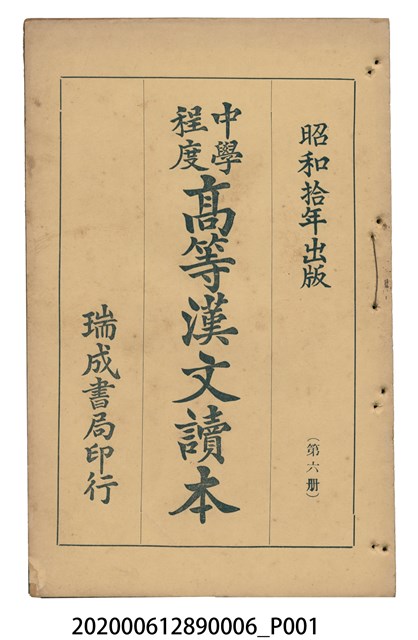 昭和拾年出版
（第六册）
中學
程度
高等漢文讀本
瑞成書局印行
202000612890006_P001